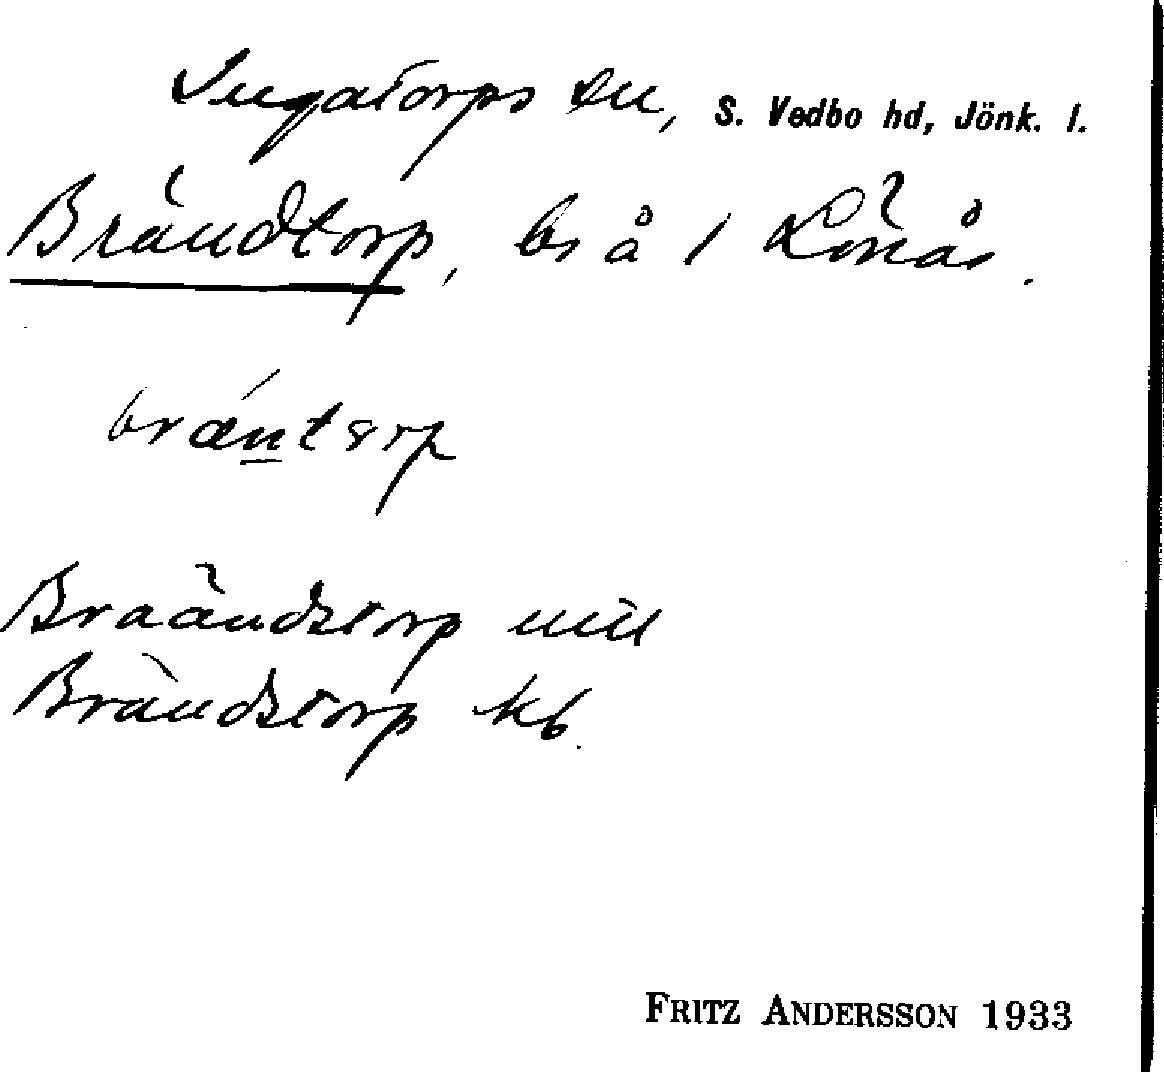 Ingatorps sn, S. Vedbo hd, Jönk. l.
Brändtorp, bs å 1 Lönås.
bræntorp
Braändstorp mtl
Brändstorp kb.
FRITZ ANDERSSON 1933